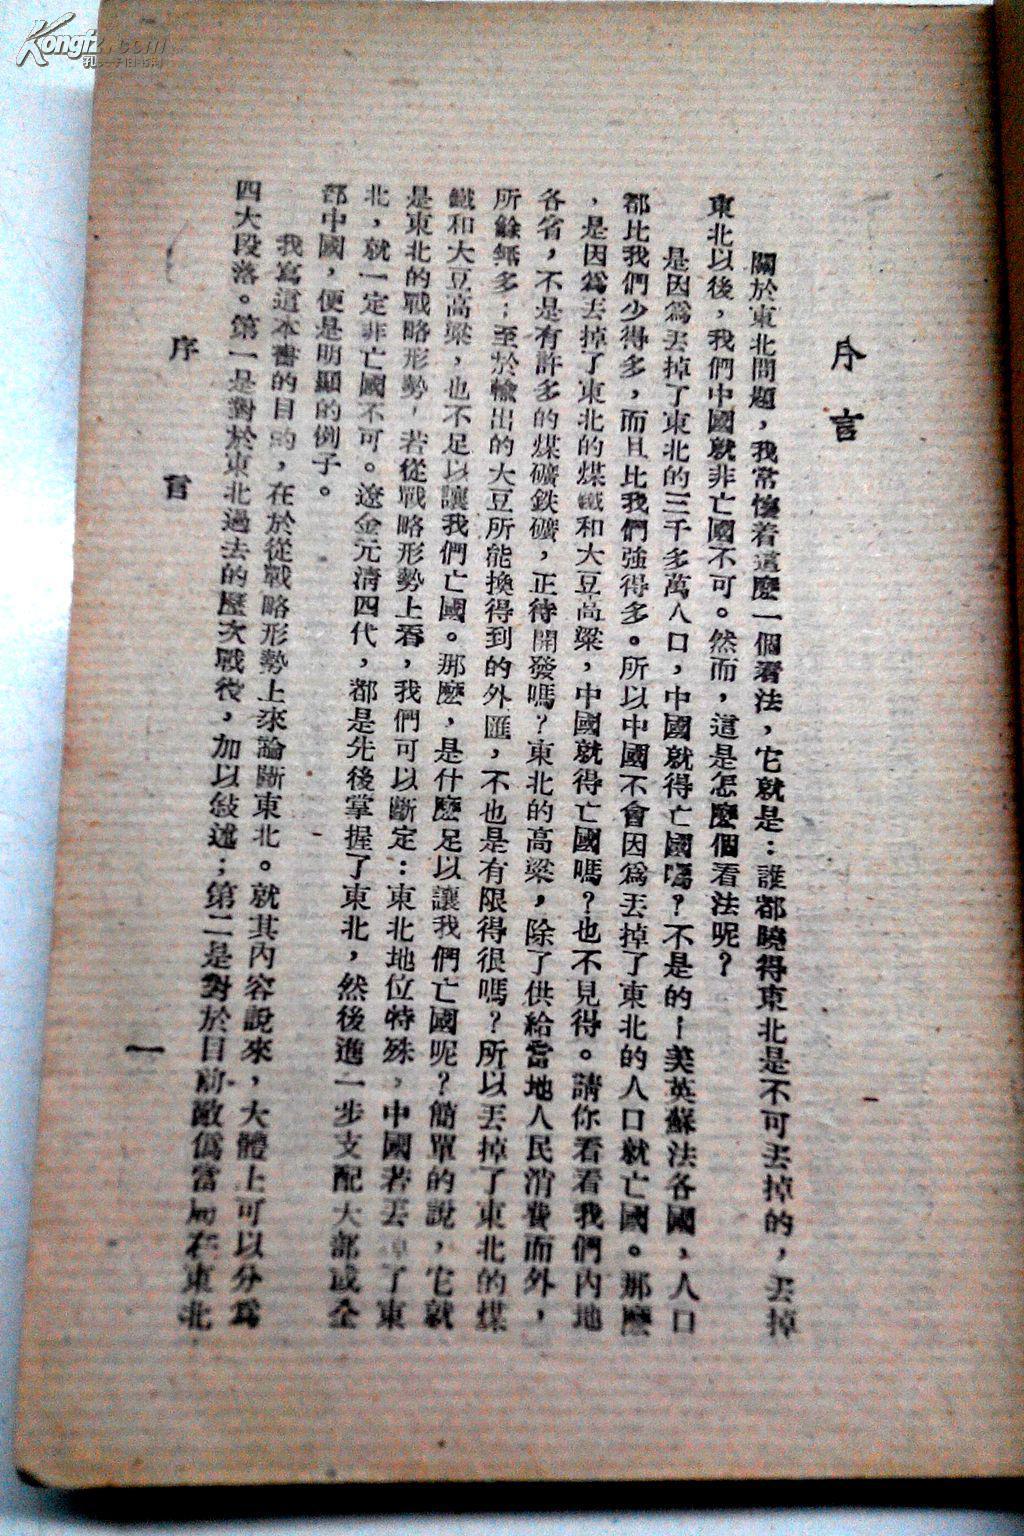 序言
關於東北問題，我常懷着這麼一個看法，它就是：誰都曉得東北是不可丟掉的，丟掉
東北以後，我們中國就非亡國不可。然而，這是怎麼個看法呢？
是因爲丟掉了東北的三千多萬人口，中國就得亡國嗎？不是的！美英蘇法各國，人口
都比我們少得多，而且比我們強得多。所以中國不會因爲丟掉了東北的人口就亡國。那麼
，是因爲丟掉了東北的煤鐵和大豆高粱，中國就得亡國嗎？也不見得。請你看看我們內地
各省，不是有許多的煤礦鉄礦，正待開發嗎？東北的高粱，除了供給當地人民消費而外，
所餘無多；至於輸出的大豆所能換得到的外匯，不也是有限得很嗎？所以丟掉了東北的煤
鐵和大豆高粱，也不足以讓我們亡國。那麼，是什麼足以讓我們亡國呢？簡單的說，它就
是東北的戰略形勢，若從戰略形勢上看，我們可以斷定：東北地位特殊，中國若丟掉了東
北，就一定非亡國不可。遼金元清四代，都是先後掌握了東北，然後進一步支配大部或全
部中國，便是明顯的例子。
我寫這本書的目的，在於從戰略形勢上來論斷東北。就其內容說來，大體上可以分爲
四大段落。第一是對於東北過去的歷次戰役，加以敍述；第二是對於目前敵僞當局在東北
序言
一
Kongfz.com